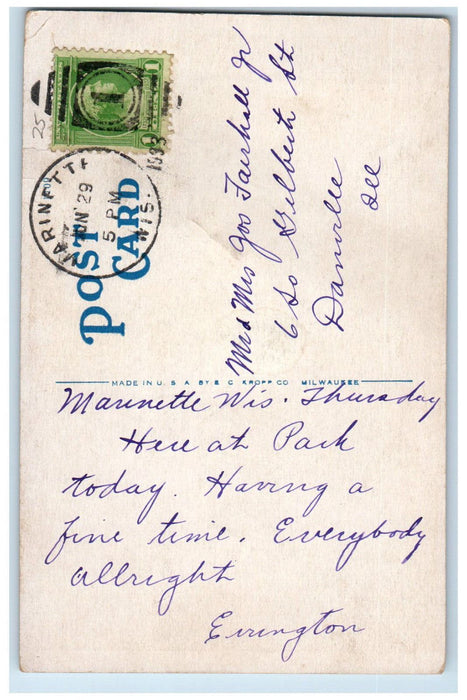 25
1
MARINETTE
JUN 29
5 PM
1933
WIS.
POST
CARD
Mr & Mrs Jos Fairhall Jr
6 So Gilbert St
Danville
Ill
MADE IN U. S. A. BY E. C. KROPP CO. MILWAUKEE
Marinette Wis. Thursday
Here at Park
today. Having a
fine time. Everybody
allright
Errington